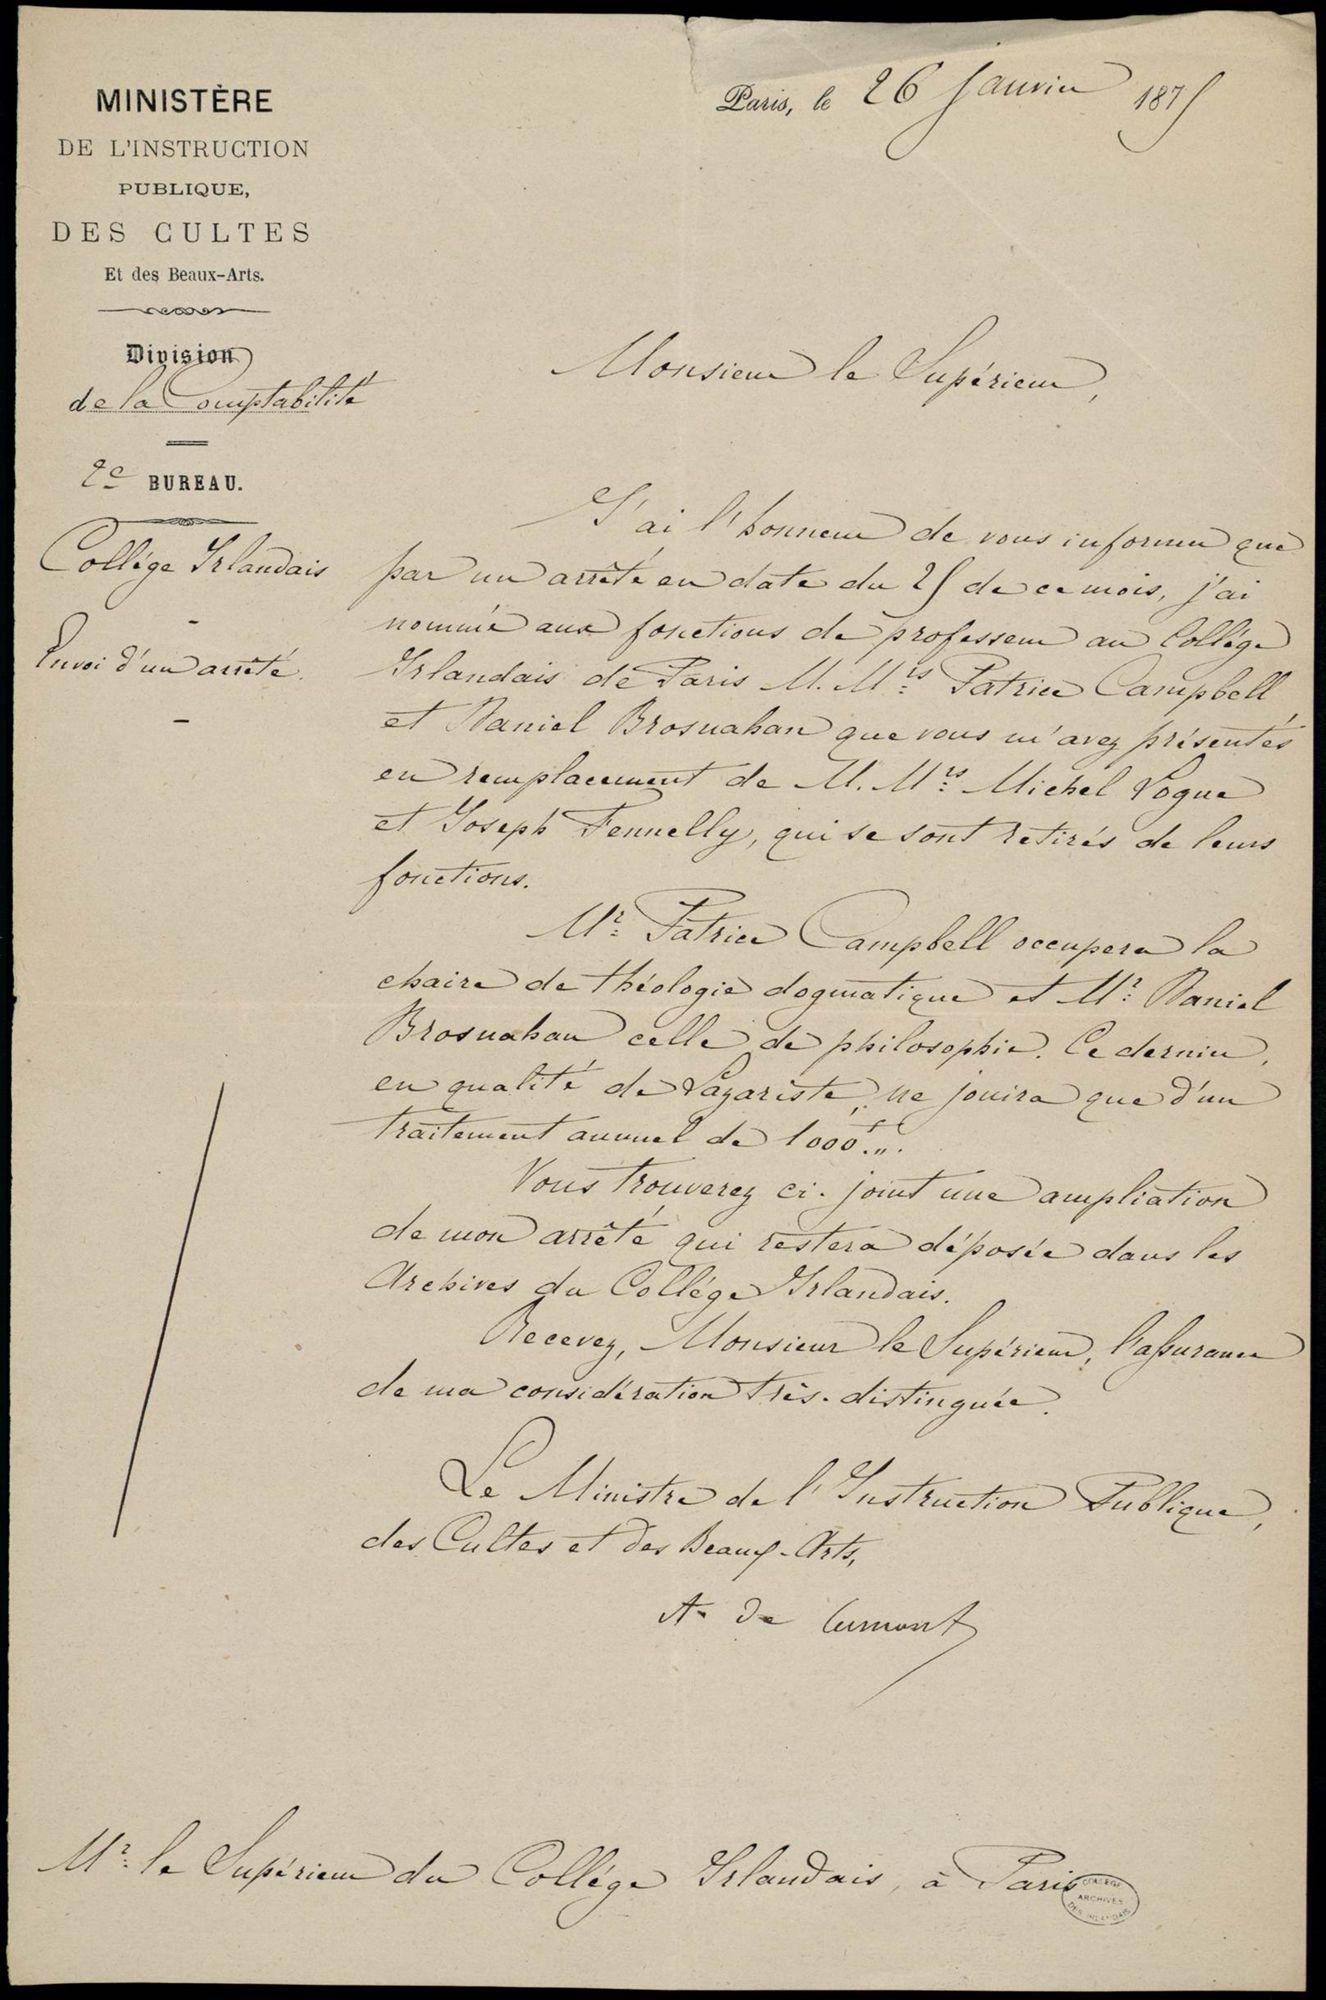 MINISTÈRE
DE L'INSTRUCTION
PUBLIQUE,
DES CULTES
Et des Beaux-Arts.
Division
de la Comptabilité
2e BUREAU.
Collége Irlandais
Envoi d'un arrêté.
Paris, le 26 Janvier 1875
Monsieur le Supérieur,
J'ai l'honneur de vous informer que
par un arrêté en date du 25 de ce mois, j'ai
nommé aux fonctions de professeur au Collége
Irlandais de Paris M. Mrs Patrice Campbell
et Daniel Brosnahan que vous m'avez présentés
en remplacement de M. Mrs Michel Logue
et Joseph Fennelly, qui se sont retirés de leurs
fonctions.
Mr Patrice Campbell occupera la
chaire de théologie dogmatique et Mr Daniel
Brosnahan celle de philosophie. Ce dernier,
en qualité de Lazariste, ne jouira que d'un
traitement annuel de 1000f.".
Vous trouverez ci-joint une ampliation
de mon arrêté qui restera déposée dans les
Archives du Collége Irlandais.
Recevez, Monsieur le Supérieur, l'assurance
de ma considération très-distinguée.
Le Ministre de l'Instruction Publique,
des Cultes et des Beaux-Arts,
A. de Cumont
Mr le Supérieur du Collége Irlandais, à Paris
COLLEGE
ARCHIVES
DES IRLANDAIS